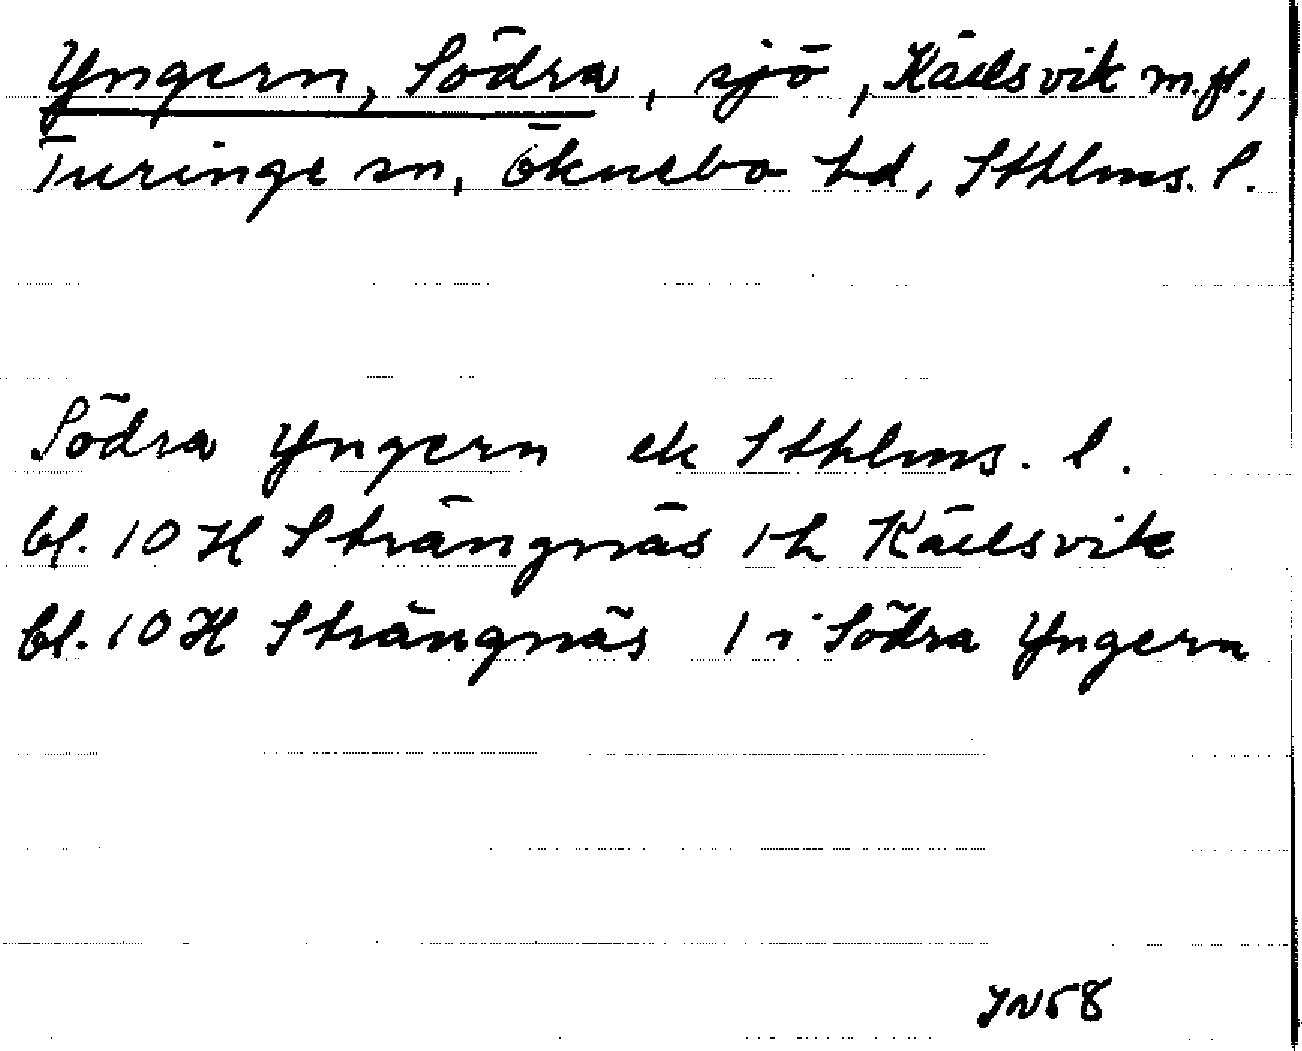 Yngern, Södra, sjö, Källsvik m.fl.,
Turinge sn, Öknebo hd, Sthlms. l.
Södra Yngern ek Sthlms. l.
bl. 10 H Strängnäs 1 h Källsvik
bl. 10 H Strängnäs 1 i Södra Yngern
YN58